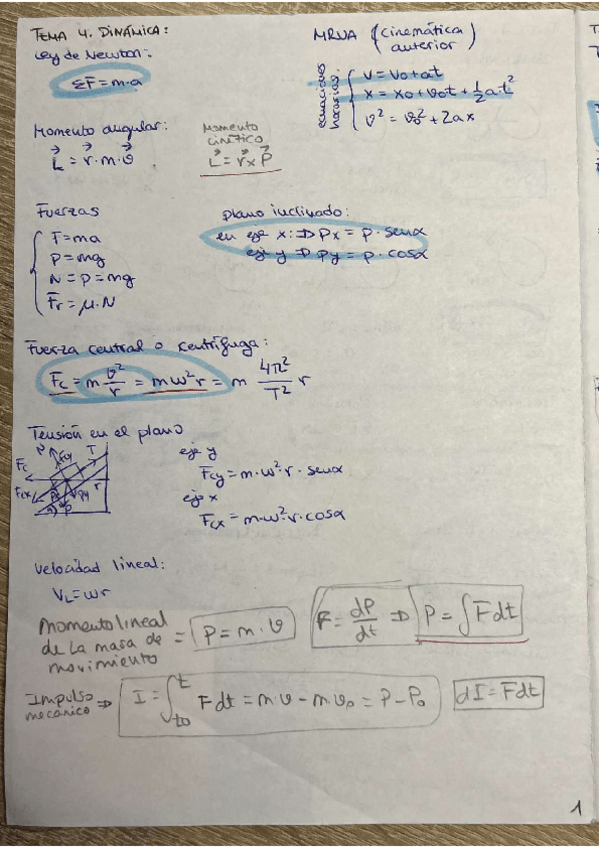 TEMA 4. DINÁMICA:
Ley de Newton:
ΣF = m·a
MRUA (cinemática anterior)
ecuaciones horarias:
v = v₀ + at
x = x₀ + v₀t + ½at²
v² = v₀² + 2ax
Momento angular:
L⃗ = r⃗·m·v⃗
Momento cinético
L⃗ = r⃗ x P⃗
Fuerzas
F = ma
P = mg
N = P = mg
Fr = μ·N
plano inclinado:
en eje x: ⇒ Px = P·senα
eje y ⇒ Py = P·cosα
Fuerza central o centrífuga:
Fc = m v²/r = mω²r = m 4π²/T² r
Tensión en el plano
N Fcy T
Fc
Fcx Py r
P
eje y
Fcy = m·ω²·r·senα
eje x
Fcx = m·ω²·r·cosα
Velocidad lineal:
VL = ωr
Momento lineal
de La masa de
movimiento
= P = m·v
F = dP/dt ⇒ P = ∫F dt
Impulso
mecánico ⇒ I = ∫ₜ₀ᵗ F dt = m·v − m·v₀ = P − P₀
dI = F dt
1